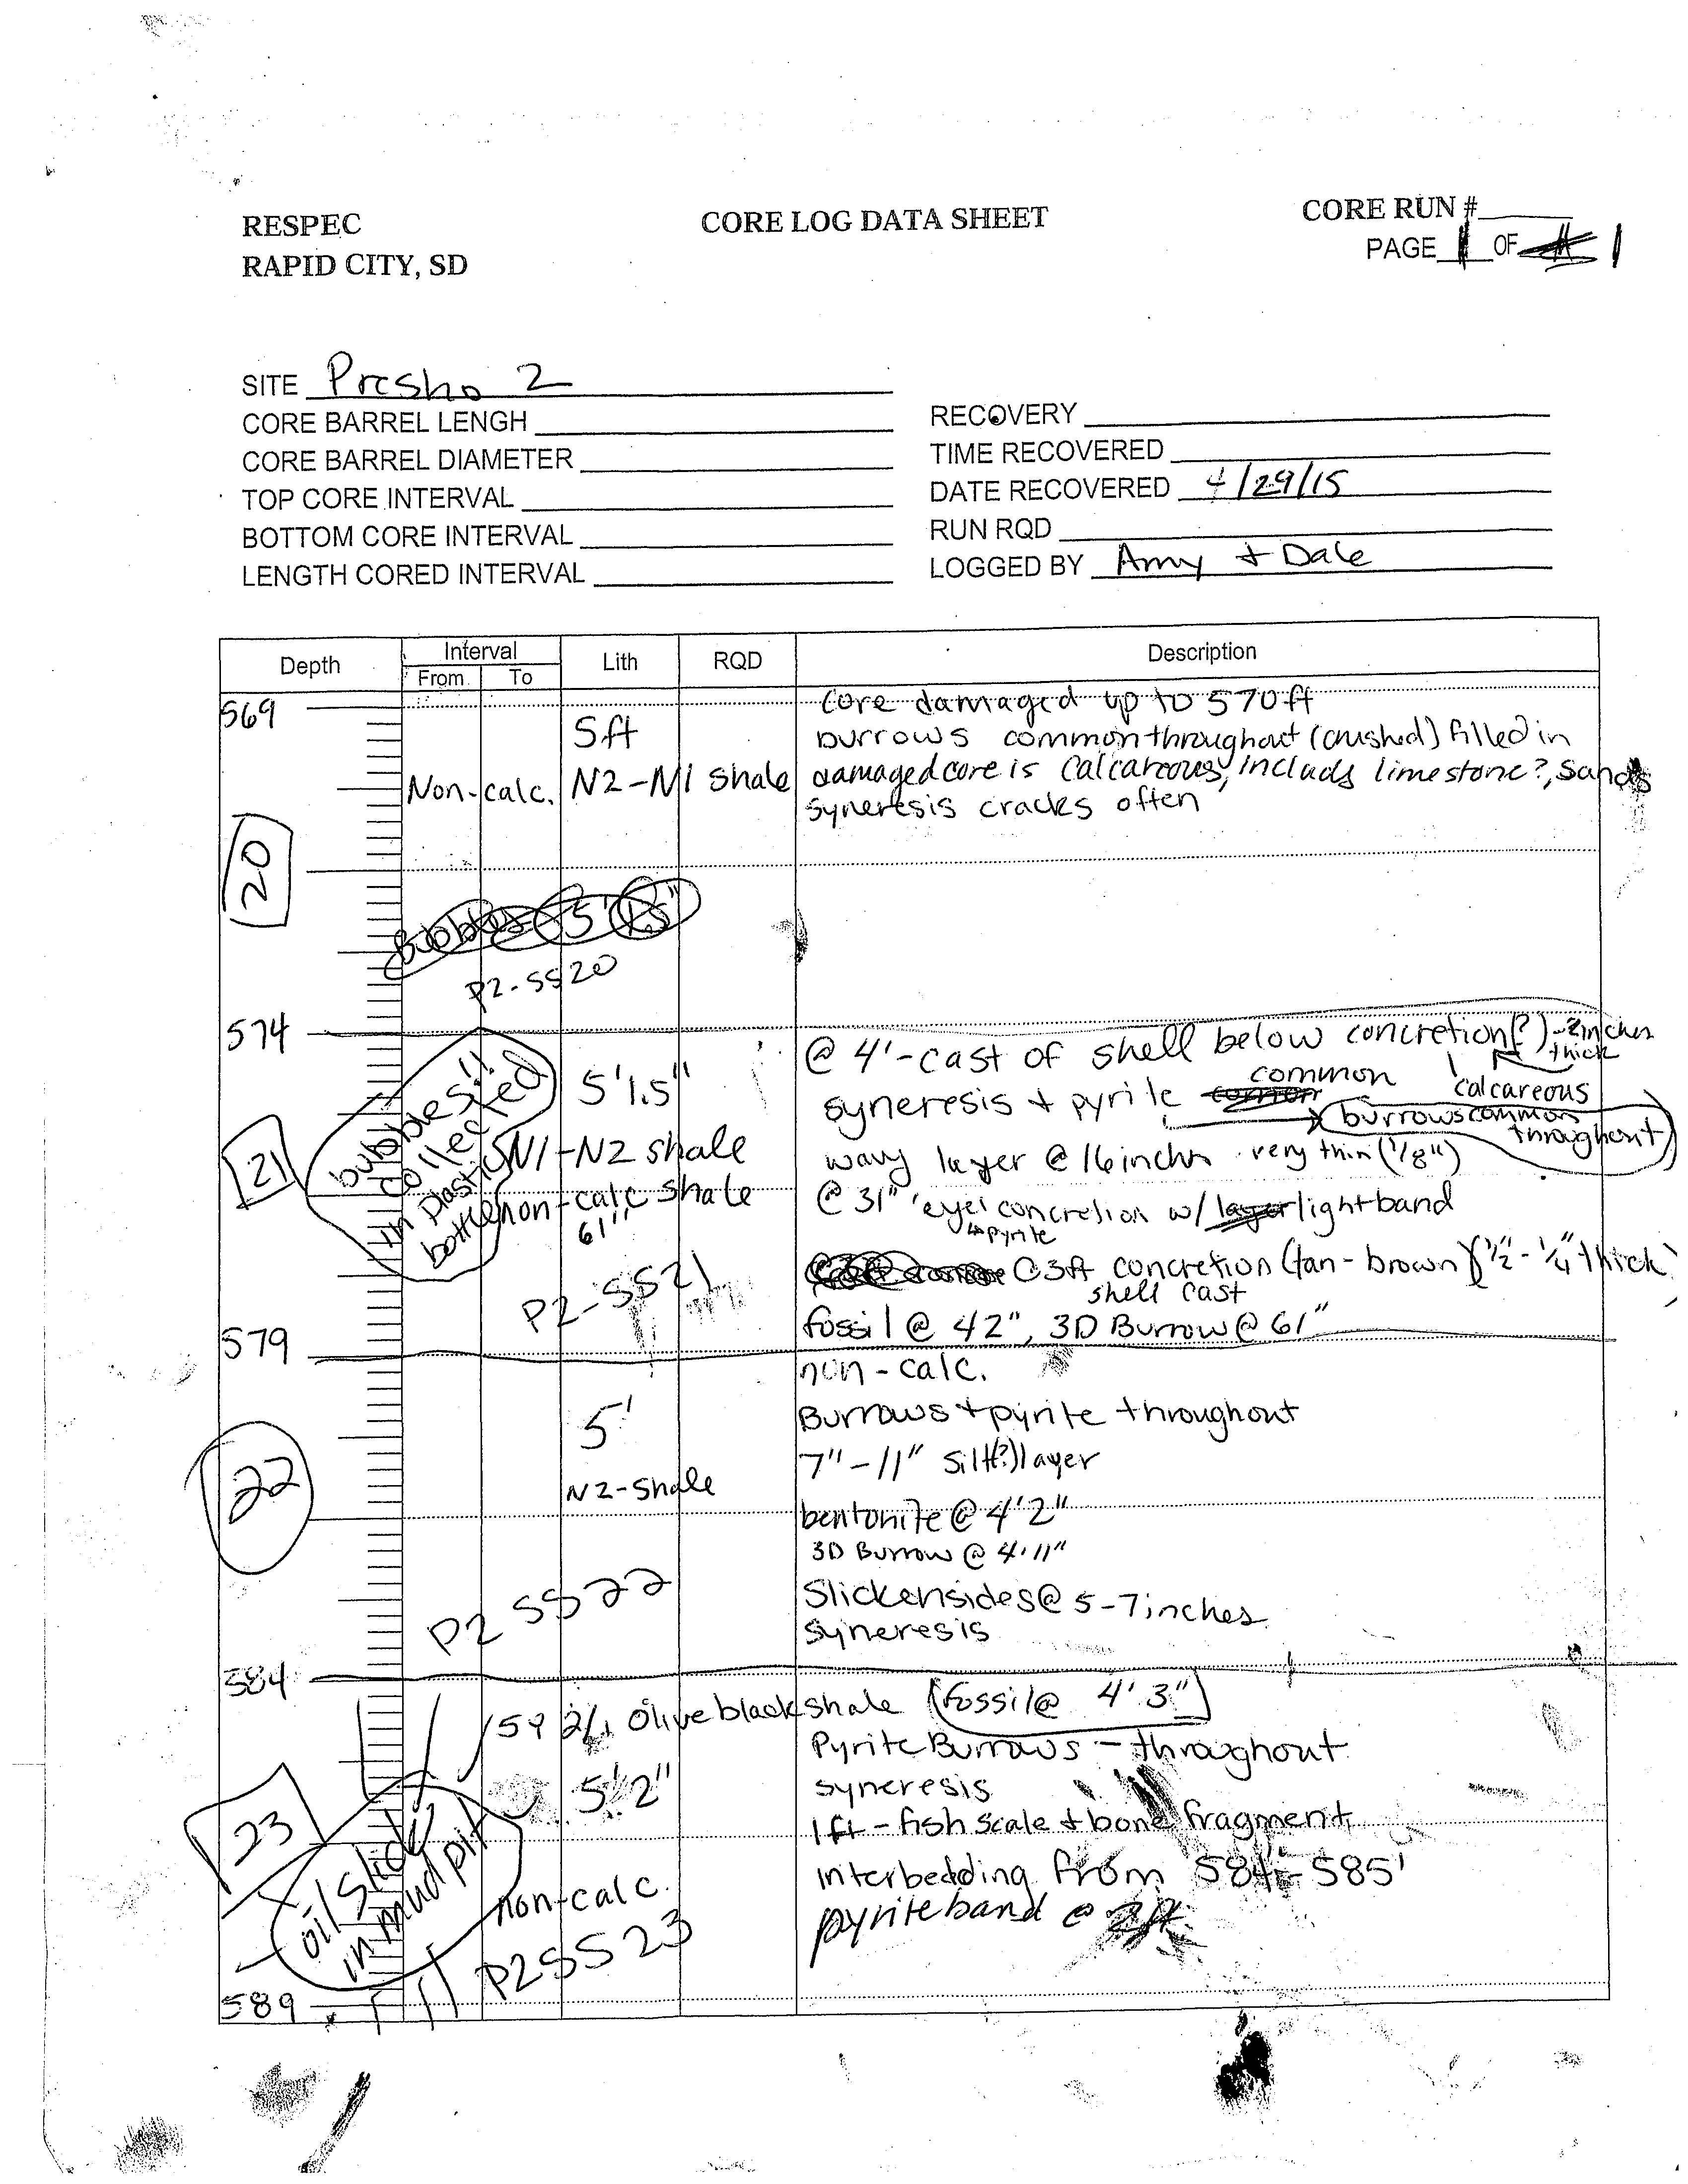 RESPEC
RAPID CITY, SD
CORE LOG DATA SHEET
CORE RUN #
PAGE 1 OF 1
SITE Presho 2
CORE BARREL LENGH
CORE BARREL DIAMETER
TOP CORE INTERVAL
BOTTOM CORE INTERVAL
LENGTH CORED INTERVAL
RECOVERY
TIME RECOVERED
DATE RECOVERED 4/29/15
RUN RQD
LOGGED BY Amy + Dale
Depth Interval Lith RQD Description
From To
569
20
Non-calc.
5ft
N2-N1 Shale
Core damaged up to 570ft
burrows common throughout (crushed) filled in
damaged core is calcareous, includs limestone?, sands
syneresis cracks often
Bubbles 5'1.5"
P2-SS20
574
21
bubbles!!
collected
in plastic
bottle
5'1.5"
N1-N2 shale
non-calc shale
61"
P2-SS21
@ 4'-cast of shell below concretion(?)-2inches
thick
common calcareous
syneresis + pyrite
burrows common
throughout
wavy layer @ 16 inches very thin (1/8")
@ 31" 'eye' concretion w/ light band
↳ pyrite
@3ft concretion (tan-brown) (1/2"-1/4" thick)
shell cast
fossil @ 42", 3D Burrow @ 61"
579
22
5'
N2-Shale
P2 SS22
non-calc.
Burrows + pyrite throughout
7"-11" Silt(?) layer
bentonite @ 4'2"
3D Burrow @ 4'11"
Slickensides @ 5-7 inches
syneresis
584
23
5Y 2/1 Olive black shale (fossil @ 4'3")
5'2"
oil slick
in mud pit
non-calc.
P2SS23
Pyrite Burrows - throughout
syneresis
1ft - fish scale + bone fragment
Interbedding from 584-585'
pyrite band @
589